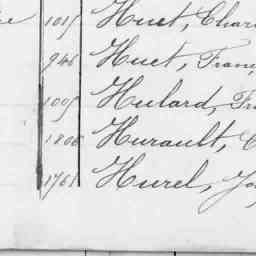 1015 Huet, Char
946 Huet, Franç
1005 Hulard, Fr
1806 Hurault, C
1761 Hurel, Jo